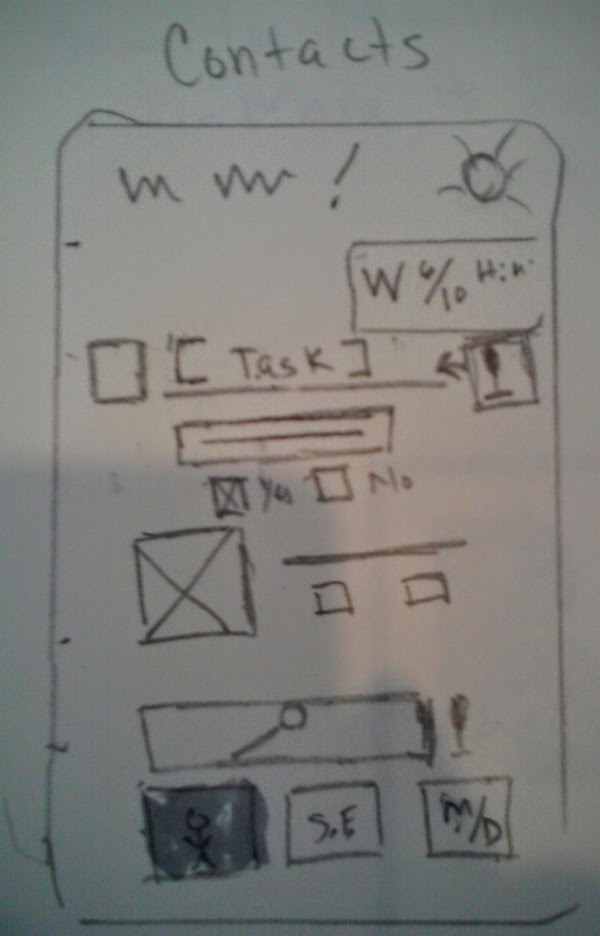 Contacts
W 6/10 H:n.
[ Task ] !
Yes No
!
S.E M/D